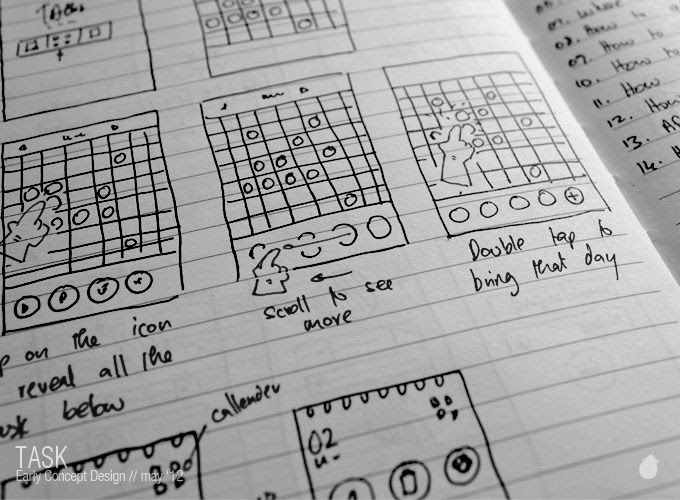 07. Where
08. How to a
09. How to
10. How to
11. How
12. How
13.
14. H
Double tap to
bring that day
scroll to see
more
p on the icon
reveal all the
ask below
callender
02
TASK
Early Concept Design // may '12